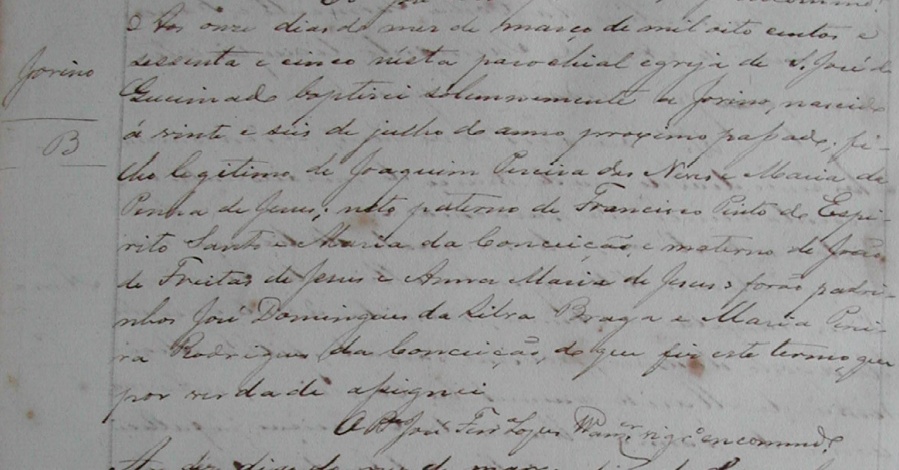 Aos onze dias do mez de março de mil oito centos e
Jorino
sessenta e cinco nésta parochial egreja de S. José do
Queimado baptisei solemnemente a Jorino, nascido
B
á vinte e séis de julho do anno proximo passado, fi-
lho legitimo de Joaquim Pereira das Neves e Maria da
Penna de Jesus; neto paterno de Francisco Pinto do Espi-
rito Santo e Maria da Conceição, e materno de João
de Freitas de Jesus e Anna Maria de Jesus: forão padri-
nhos José Domingues da Silva Braga e Maria Perei-
ra Rodrigues da Conceição, do que fiz este termo que
por verdade assignei
O José vigº encommdº